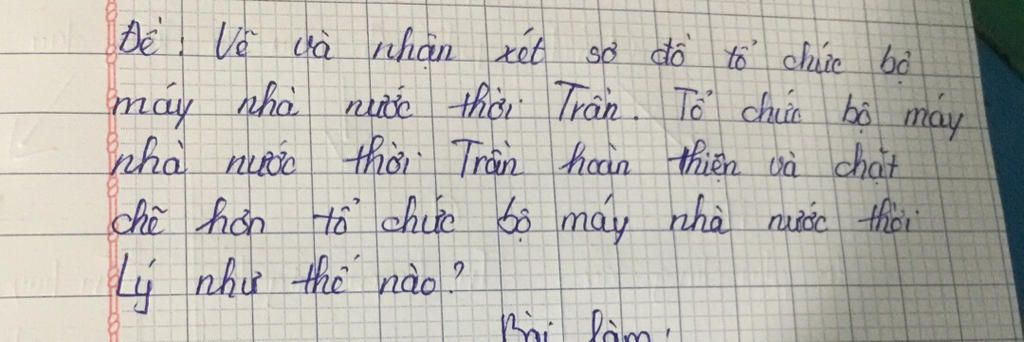 Đề: Vẽ và nhận xét sơ đồ tổ chức bộ
máy nhà nước thời Trần. Tổ chức bộ máy
nhà nước thời Trần hoàn thiện và chặt
chẽ hơn tổ chức bộ máy nhà nước thời
Lý như thế nào?
Bài làm: